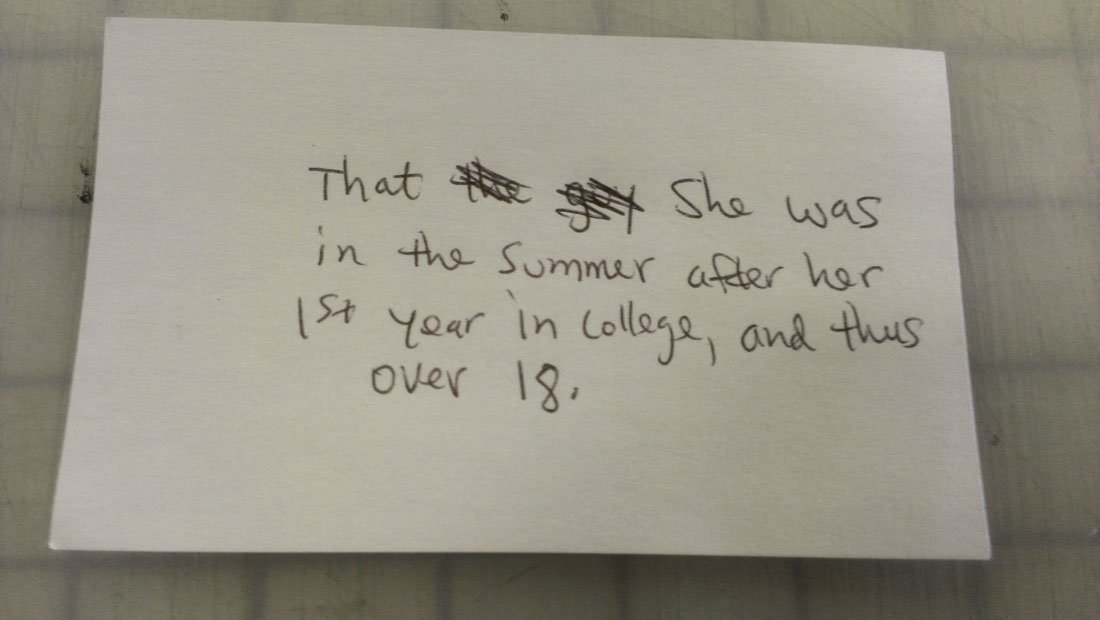 That She was
in the summer after her
1st year in college, and thus
over 18.